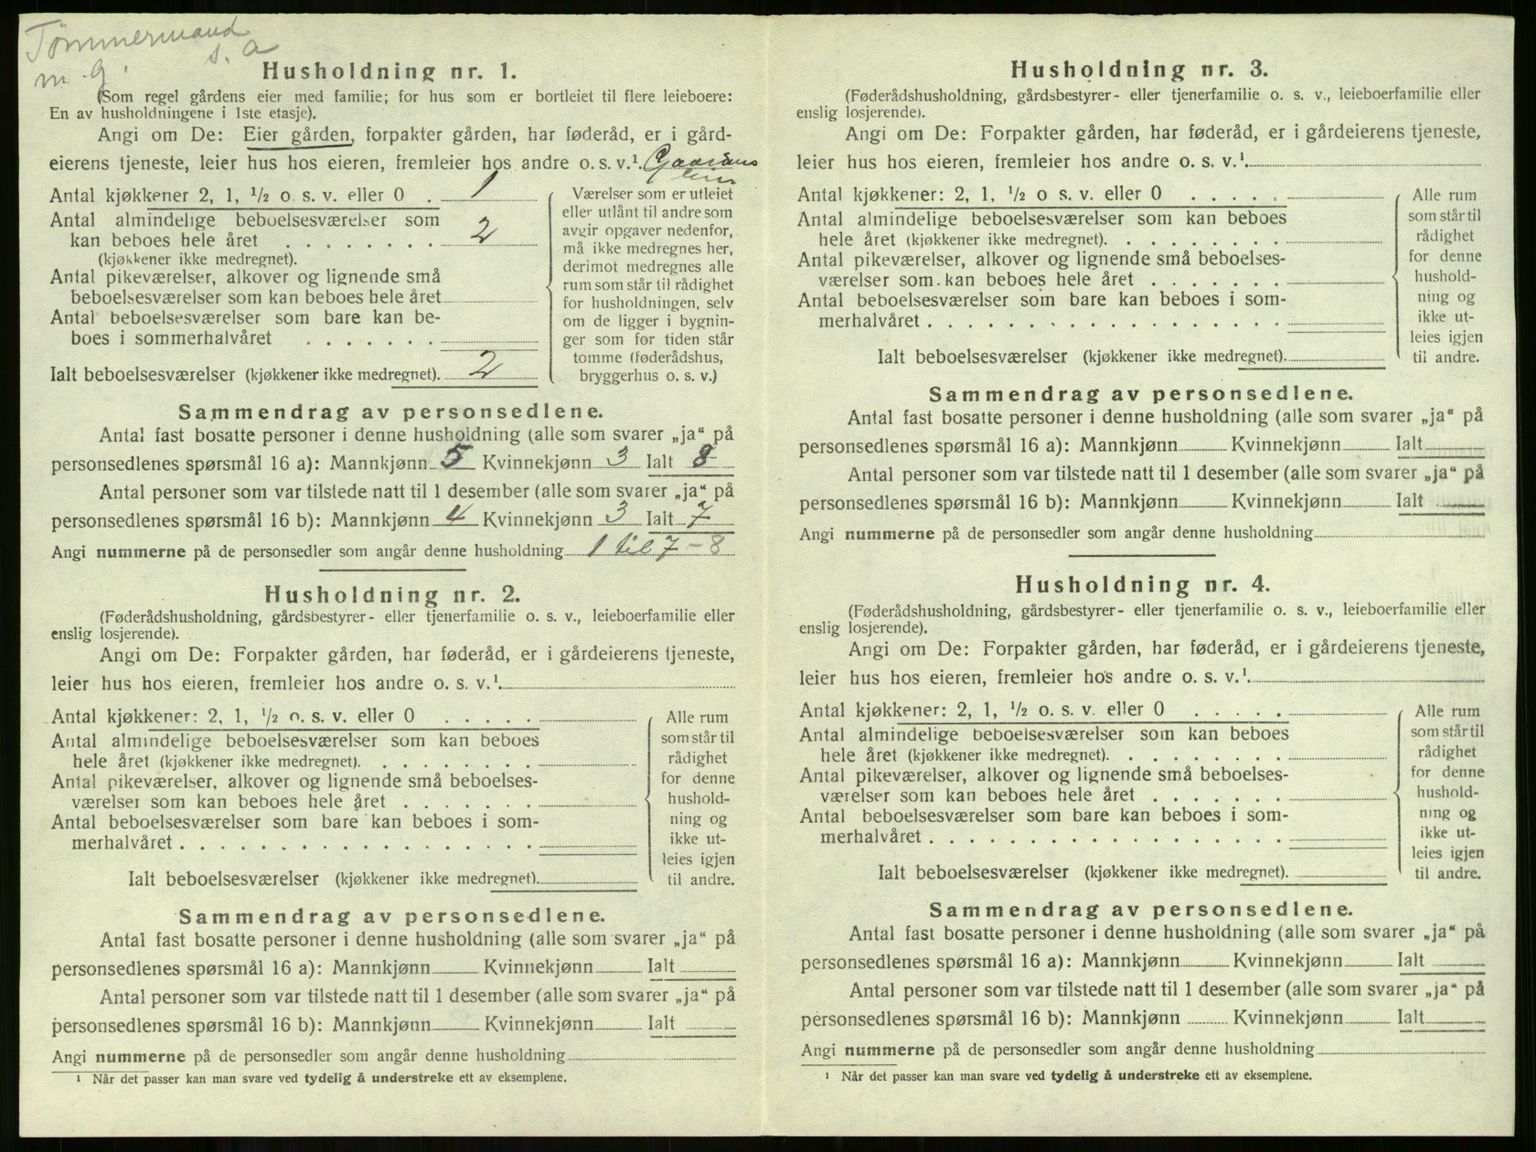 Tømmermand
s. a
m. g.
Husholdning nr. 1.
(Som regel gårdens eier med familie; for hus som er bortleiet til flere leieboere:
En av husholdningene i 1ste etasje).
Angi om De: Eier gården, forpakter gården, har føderåd, er i gård-
eierens tjeneste, leier hus hos eieren, fremleier hos andre o. s. v.¹
Antal kjøkkener 2, 1, ½ o. s. v. eller 0 . 1
Antal almindelige beboelsesværelser som
kan beboes hele året . . . . . . . . 2
(kjøkkener ikke medregnet).
Antal pikeværelser, alkover og lignende små
beboelsesværelser som kan beboes hele året
Antal beboelsesværelser som bare kan be-
boes i sommerhalvåret . . . . . . .
Ialt beboelsesværelser (kjøkkener ikke medregnet). 2
Værelser som er utleiet
eller utlånt til andre som
avgir opgaver nedenfor,
må ikke medregnes her,
derimot medregnes alle
rum som står til rådighet
for husholdningen, selv
om de ligger i bygnin-
ger som for tiden står
tomme (føderådshus,
bryggerhus o. s. v.)
Sammendrag av personsedlene.
Antal fast bosatte personer i denne husholdning (alle som svarer „ja“ på
personsedlenes spørsmål 16 a): Mannkjønn 5 Kvinnekjønn 3 Ialt 8
Antal personer som var tilstede natt til 1 desember (alle som svarer „ja“ på
personsedlenes spørsmål 16 b): Mannkjønn 4 Kvinnekjønn 3 Ialt 7
Angi nummerne på de personsedler som angår denne husholdning 1 til 7 - 8
Husholdning nr. 2.
(Føderådshusholdning, gårdsbestyrer- eller tjenerfamilie o. s. v., leieboerfamilie eller
enslig losjerende).
Angi om De: Forpakter gården, har føderåd, er i gårdeierens tjeneste,
leier hus hos eieren, fremleier hos andre o. s. v.¹
Antal kjøkkener: 2, 1, ½ o. s. v. eller 0 . . . . .
Antal almindelige beboelsesværelser som kan beboes
hele året (kjøkkener ikke medregnet). . . . . . . .
Antal pikeværelser, alkover og lignende små beboelses-
værelser som kan beboes hele året . . . . . . .
Antal beboelsesværelser som bare kan beboes i som-
merhalvåret . . . . . . . . . . . . . . . . . . .
Ialt beboelsesværelser (kjøkkener ikke medregnet).
Alle rum
som står til
rådighet
for denne
hushold-
ning og
ikke ut-
leies igjen
til andre.
Sammendrag av personsedlene.
Antal fast bosatte personer i denne husholdning (alle som svarer „ja“ på
personsedlenes spørsmål 16 a): Mannkjønn Kvinnekjønn Ialt
Antal personer som var tilstede natt til 1 desember (alle som svarer „ja“ på
personsedlenes spørsmål 16 b): Mannkjønn Kvinnekjønn Ialt
Angi nummerne på de personsedler som angår denne husholdning
¹ Når det passer kan man svare ved tydelig å understreke ett av eksemplene.
Husholdning nr. 3.
(Føderådshusholdning, gårdsbestyrer- eller tjenerfamilie o. s. v., leieboerfamilie eller
enslig losjerende).
Angi om De: Forpakter gården, har føderåd, er i gårdeierens tjeneste,
leier hus hos eieren, fremleier hos andre o. s. v.¹
Antal kjøkkener: 2, 1, ½ o s. v. eller 0 . . . . .
Antal almindelige beboelsesværelser som kan beboes
hele året (kjøkkener ikke medregnet). . . . . . . .
Antal pikeværelser, alkover og lignende små beboelses-
værelser som kan beboes hele året . . . . . . .
Antal beboelsesværelser som bare kan beboes i som-
merhalvåret . . . . . . . . . . . . . . . . . . .
Ialt beboelsesværelser (kjøkkener ikke medregnet).
Alle rum
som står til
rådighet
for denne
hushold-
ning og
ikke ut-
leies igjen
til andre.
Sammendrag av personsedlene.
Antal fast bosatte personer i denne husholdning (alle som svarer „ja“ på
personsedlenes spørsmål 16 a): Mannkjønn Kvinnekjønn Ialt
Antal personer som var tilstede natt til 1 desember (alle som svarer „ja“ på
personsedlenes spørsmål 16 b): Mannkjønn Kvinnekjønn Ialt
Angi nummerne på de personsedler som angår denne husholdning
Husholdning nr. 4.
(Føderådshusholdning, gårdsbestyrer- eller tjenerfamilie o. s. v., leieboerfamilie eller
enslig losjerende).
Angi om De: Forpakter gården, har føderåd, er i gårdeierens tjeneste,
leier hus hos eieren, fremleier hos andre o. s. v.¹
Antal kjøkkener: 2, 1, ½ o. s. v. eller 0 . . . . .
Antal almindelige beboelsesværelser som kan beboes
hele året (kjøkkener ikke medregnet). . . . . . . .
Antal pikeværelser, alkover og lignende små beboelses-
værelser som kan beboes hele året . . . . . . .
Antal beboelsesværelser som bare kan beboes i som-
merhalvåret . . . . . . . . . . . . . . . . . . .
Ialt beboelsesværelser (kjøkkener ikke medregnet).
Alle rum
som står til
rådighet
for denne
hushold-
ning og
ikke ut-
leies igjen
til andre.
Sammendrag av personsedlene.
Antal fast bosatte personer i denne husholdning (alle som svarer „ja“ på
personsedlenes spørsmål 16 a): Mannkjønn Kvinnekjønn Ialt
Antal personer som var tilstede natt til 1 desember (alle som svarer „ja“ på
personsedlenes spørsmål 16 b): Mannkjønn Kvinnekjønn Ialt
Angi nummerne på de personsedler som angår denne husholdning
¹ Når det passer kan man svare ved tydelig å understreke ett av eksemplene.